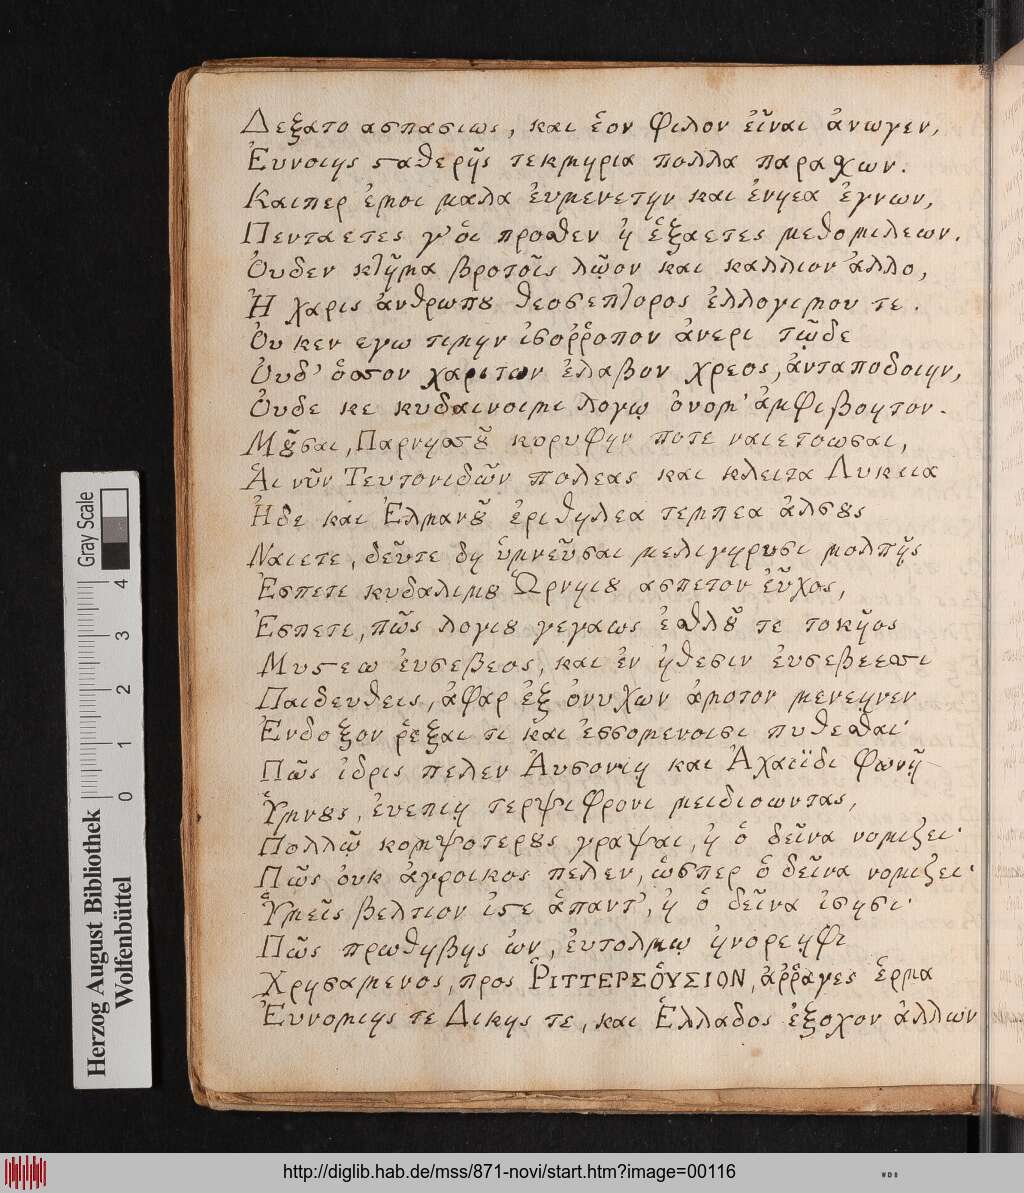 Δεξατο ασπασιως, και ἑον φιλον εἶναι ἀνωγεν,
Ἐυνοιης ϛαθερῆς τεκμηρια πολλα παραχων.
Καιπερ ἐμοι μαλα ἐυμενετην και ἐνηεα ἐγνων,
Πενταετες γ' ὁι προσθεν ἠ ἑξαετες μεθομιλεων.
Ὀυδεν κτῆμα βροτοῖς λῷον και καλλιον ἀλλο,
Ἠ χαρις ἀνθρωπȣ θεοσεπτορος ἐλλογιμου τε.
Ὀυ κεν εγω τιμην ἰσοῤῥοπον ἀνερι τῷδε
Ὀυδ' ὁσσον χαριτων ἐλαβον χρεος, ἀνταποδοιην,
Ὀυδε κε κυδαινοιμι λογῳ ὀνομ' ἀμφιβοητον.
Μȣ͂σαι, Παρνησσȣ͂ κορυφην ποτε ναιετοωσαι,
Ἁι νῦν Τευτονιδῶν πολεας και κλειτα Λυκεια
Ἠδε και Ἐλμανȣ͂ ἐριθηλεα τεμπεα ἀλσȣς
Ναιετε, δεῦτε δη ὑμνεῦσαι μελιγηρυσι μολπῇς
Ἐσπετε κυδαλιμȣ Ὡρνηιȣ ασπετον εὖχος,
Ἐσπετε, πῶς λογιȣ γεγαως ἐσθλȣ͂ τε τοκῆος
Μυϛεω ἐυσεβεος, και ἐν ἠθεσιν ἐυσεβεεσσι
Παιδευθεις, ἀφαρ ἐξ ὀνυχων ἀμοτον μενεηνεν
Ἐνδοξον ῥεξαι τι και ἐσσομενοισι πυθεσθαι·
Πῶς ἰδρις πελεν Ἀυσονιη και Ἀχαιϊδι φωνῇ
Ὑμνȣς, ἐυεπιη τερψιφρονι μειδιοωντας,
Πολλῷ κομψοτερȣς γραψαι, ἠ ὁ δεῖνα νομιζει·
Πῶς ὀυκ ἀγροικος πελεν, ὡσπερ ὁ δεῖνα νομιζει·
Ὑμεῖς βελτιον ἰϛε ἁπαντ', ἠ ὁ δεῖνα ἰσησι·
Πῶς πρωθηβης ὠν, ἐυτολμῳ ἠνορεηφι
Χρησαμενος, προς ῬΙΤΤΕΡΣΟΥΣΙΟΝ, ἀῤῥαγες ἑρμα
Ἐυνομιης τε Δικης τε, και Ἑλλαδος ἐξοχον ἀλλων
Gray Scale
4 3 2 1 0
Herzog August Bibliothek
Wolfenbüttel
http://diglib.hab.de/mss/871-novi/start.htm?image=00116
WDB